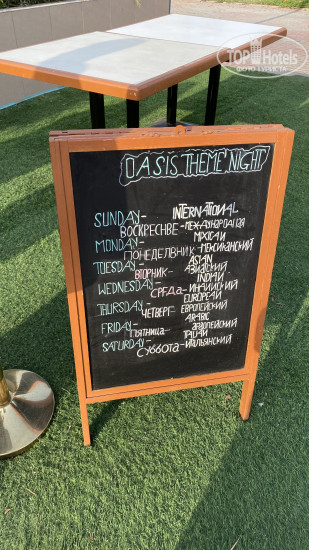 TOPHotels
ФОТО И ВИДЕО
OASIS THEME NIGHT
SUNDAY - INTERNATIONAL
ВОСКРЕСНВЕ - МЕЖДУНАРОДНАЯ
MONDAY - MXICAN
ПОНЕДЕЛВНИК - МЕКСИКАНСКИЙ
TUESDAY - ASIAN
ВТОРНИК - АЗИАТСКИЙ
WEDNESDAY - INDIAN
СРЕДА - ИНДИЙСКИЙ
THURSDAY - EUROPEAN
ЧЕТВЕРГ ЕВРОПЕЙСКИЙ
FRIDAY - ARABIC
ПЯТНИЦА -
SATURDAY - ITALIAN
СУББОТА - ИТАЛЬЯНСКИЙ